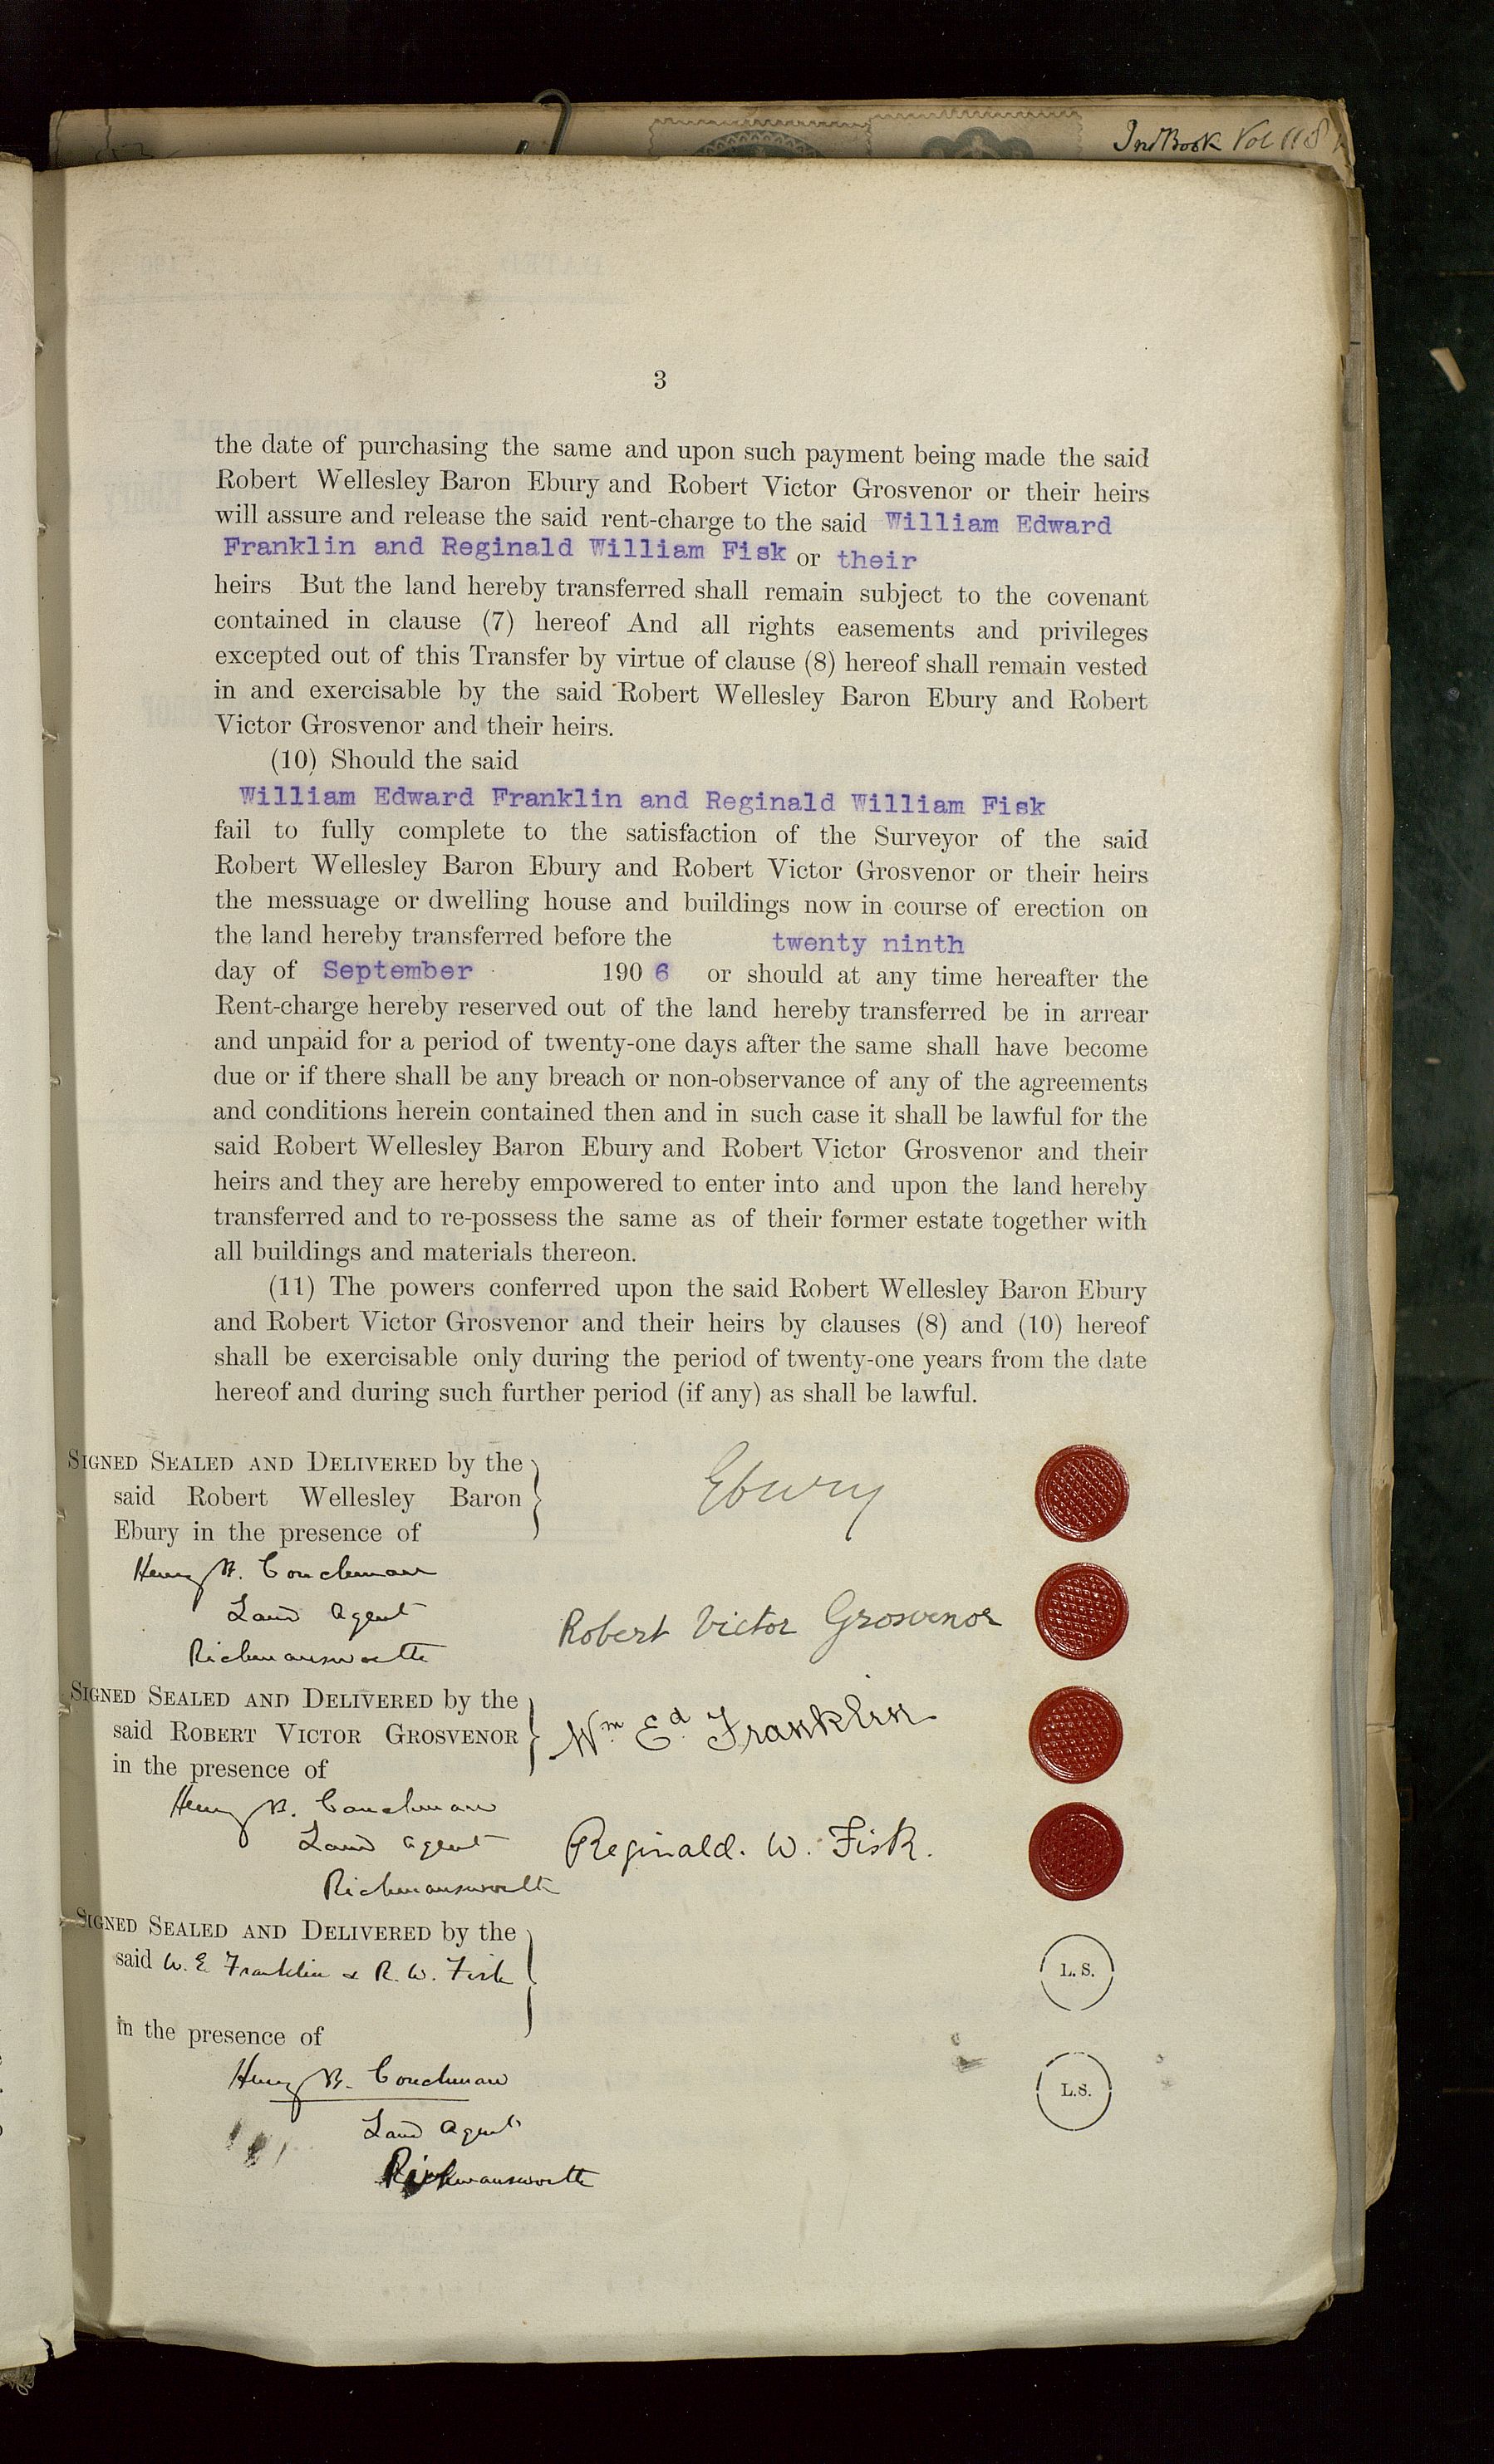 Ind Book Vol 118
3
the date of purchasing the same and upon such payment being made the said
Robert Wellesley Baron Ebury and Robert Victor Grosvenor or their heirs
will assure and release the said rent-charge to the said William Edward
Franklin and Reginald William Fisk or their
heirs But the land hereby transferred shall remain subject to the covenant
contained in clause (7) hereof And all rights easements and privileges
excepted out of this Transfer by virtue of clause (8) hereof shall remain vested
in and exercisable by the said Robert Wellesley Baron Ebury and Robert
Victor Grosvenor and their heirs.
(10) Should the said
William Edward Franklin and Reginald William Fisk
fail to fully complete to the satisfaction of the Surveyor of the said
Robert Wellesley Baron Ebury and Robert Victor Grosvenor or their heirs
the messuage or dwelling house and buildings now in course of erection on
the land hereby transferred before the twenty ninth
day of September 1906 or should at any time hereafter the
Rent-charge hereby reserved out of the land hereby transferred be in arrear
and unpaid for a period of twenty-one days after the same shall have become
due or if there shall be any breach or non-observance of any of the agreements
and conditions herein contained then and in such case it shall be lawful for the
said Robert Wellesley Baron Ebury and Robert Victor Grosvenor and their
heirs and they are hereby empowered to enter into and upon the land hereby
transferred and to re-possess the same as of their former estate together with
all buildings and materials thereon.
(11) The powers conferred upon the said Robert Wellesley Baron Ebury
and Robert Victor Grosvenor and their heirs by clauses (8) and (10) hereof
shall be exercisable only during the period of twenty-one years from the date
hereof and during such further period (if any) as shall be lawful.
SIGNED SEALED AND DELIVERED by the
said Robert Wellesley Baron
Ebury in the presence of
Ebury
Henry B. Couchman
Land Agent
Rickmansworth
Robert Victor Grosvenor
SIGNED SEALED AND DELIVERED by the
said ROBERT VICTOR GROSVENOR
in the presence of
Wm. Ed. Franklin
Henry B. Couchman
Land agent
Rickmansworth
Reginald. W. Fisk.
SIGNED SEALED AND DELIVERED by the
said W. E. Franklin & R. W. Fisk
in the presence of
L. S.
Henry B. Couchman
Land Agent
Rickmansworth
L.S.